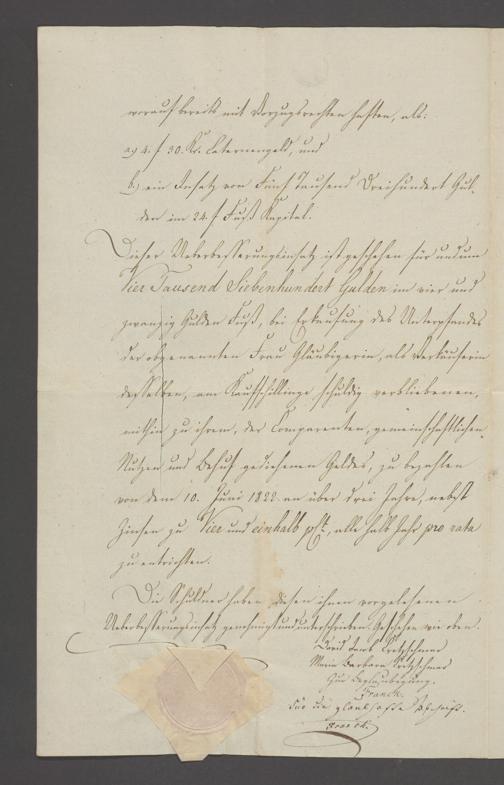 worauf bereits mit Vorzugsrechten haften, als:
a.) 4. f 30. Kr. Laternengeld, und
b.) ein Insatz von Fünf Tausend Dreihundert Gul-
den im 24. f Fuß Kapital.
Dieser Ueberbesserungsinsatz ist geschehen für und um
Vier Tausend Siebenhundert Gulden im vier und
zwanzig Gulden Fuß, bei Erkaufung des Unterpfandes
der obgenannten Frau Gläubigerin, als Verkäuferin
desselben, am Kaufschillinge schuldig verbliebenen,
mithin zu ihrem, der Comparenten, gemeinschaftlichen
Nutzen und Behuf gediehenen Geldes, zu bezahlen
von dem 10. Juni 1822 an über drei Jahre, nebst
Zinsen zu Vier und einhalb pCt., alle halb Jahr pro rata
zu entrichten.
Die Schuldner haben diesen ihnen vorgelesenen
Ueberbesserungsinsatz genehmigt und unterschrieben. Geschehen wie oben.
David Jacob Kretschmar
Maria Barbara Kretschmar
Zur Beglaubigung.
Franck.
Für die glaubhafte Abschrift.
Franck.